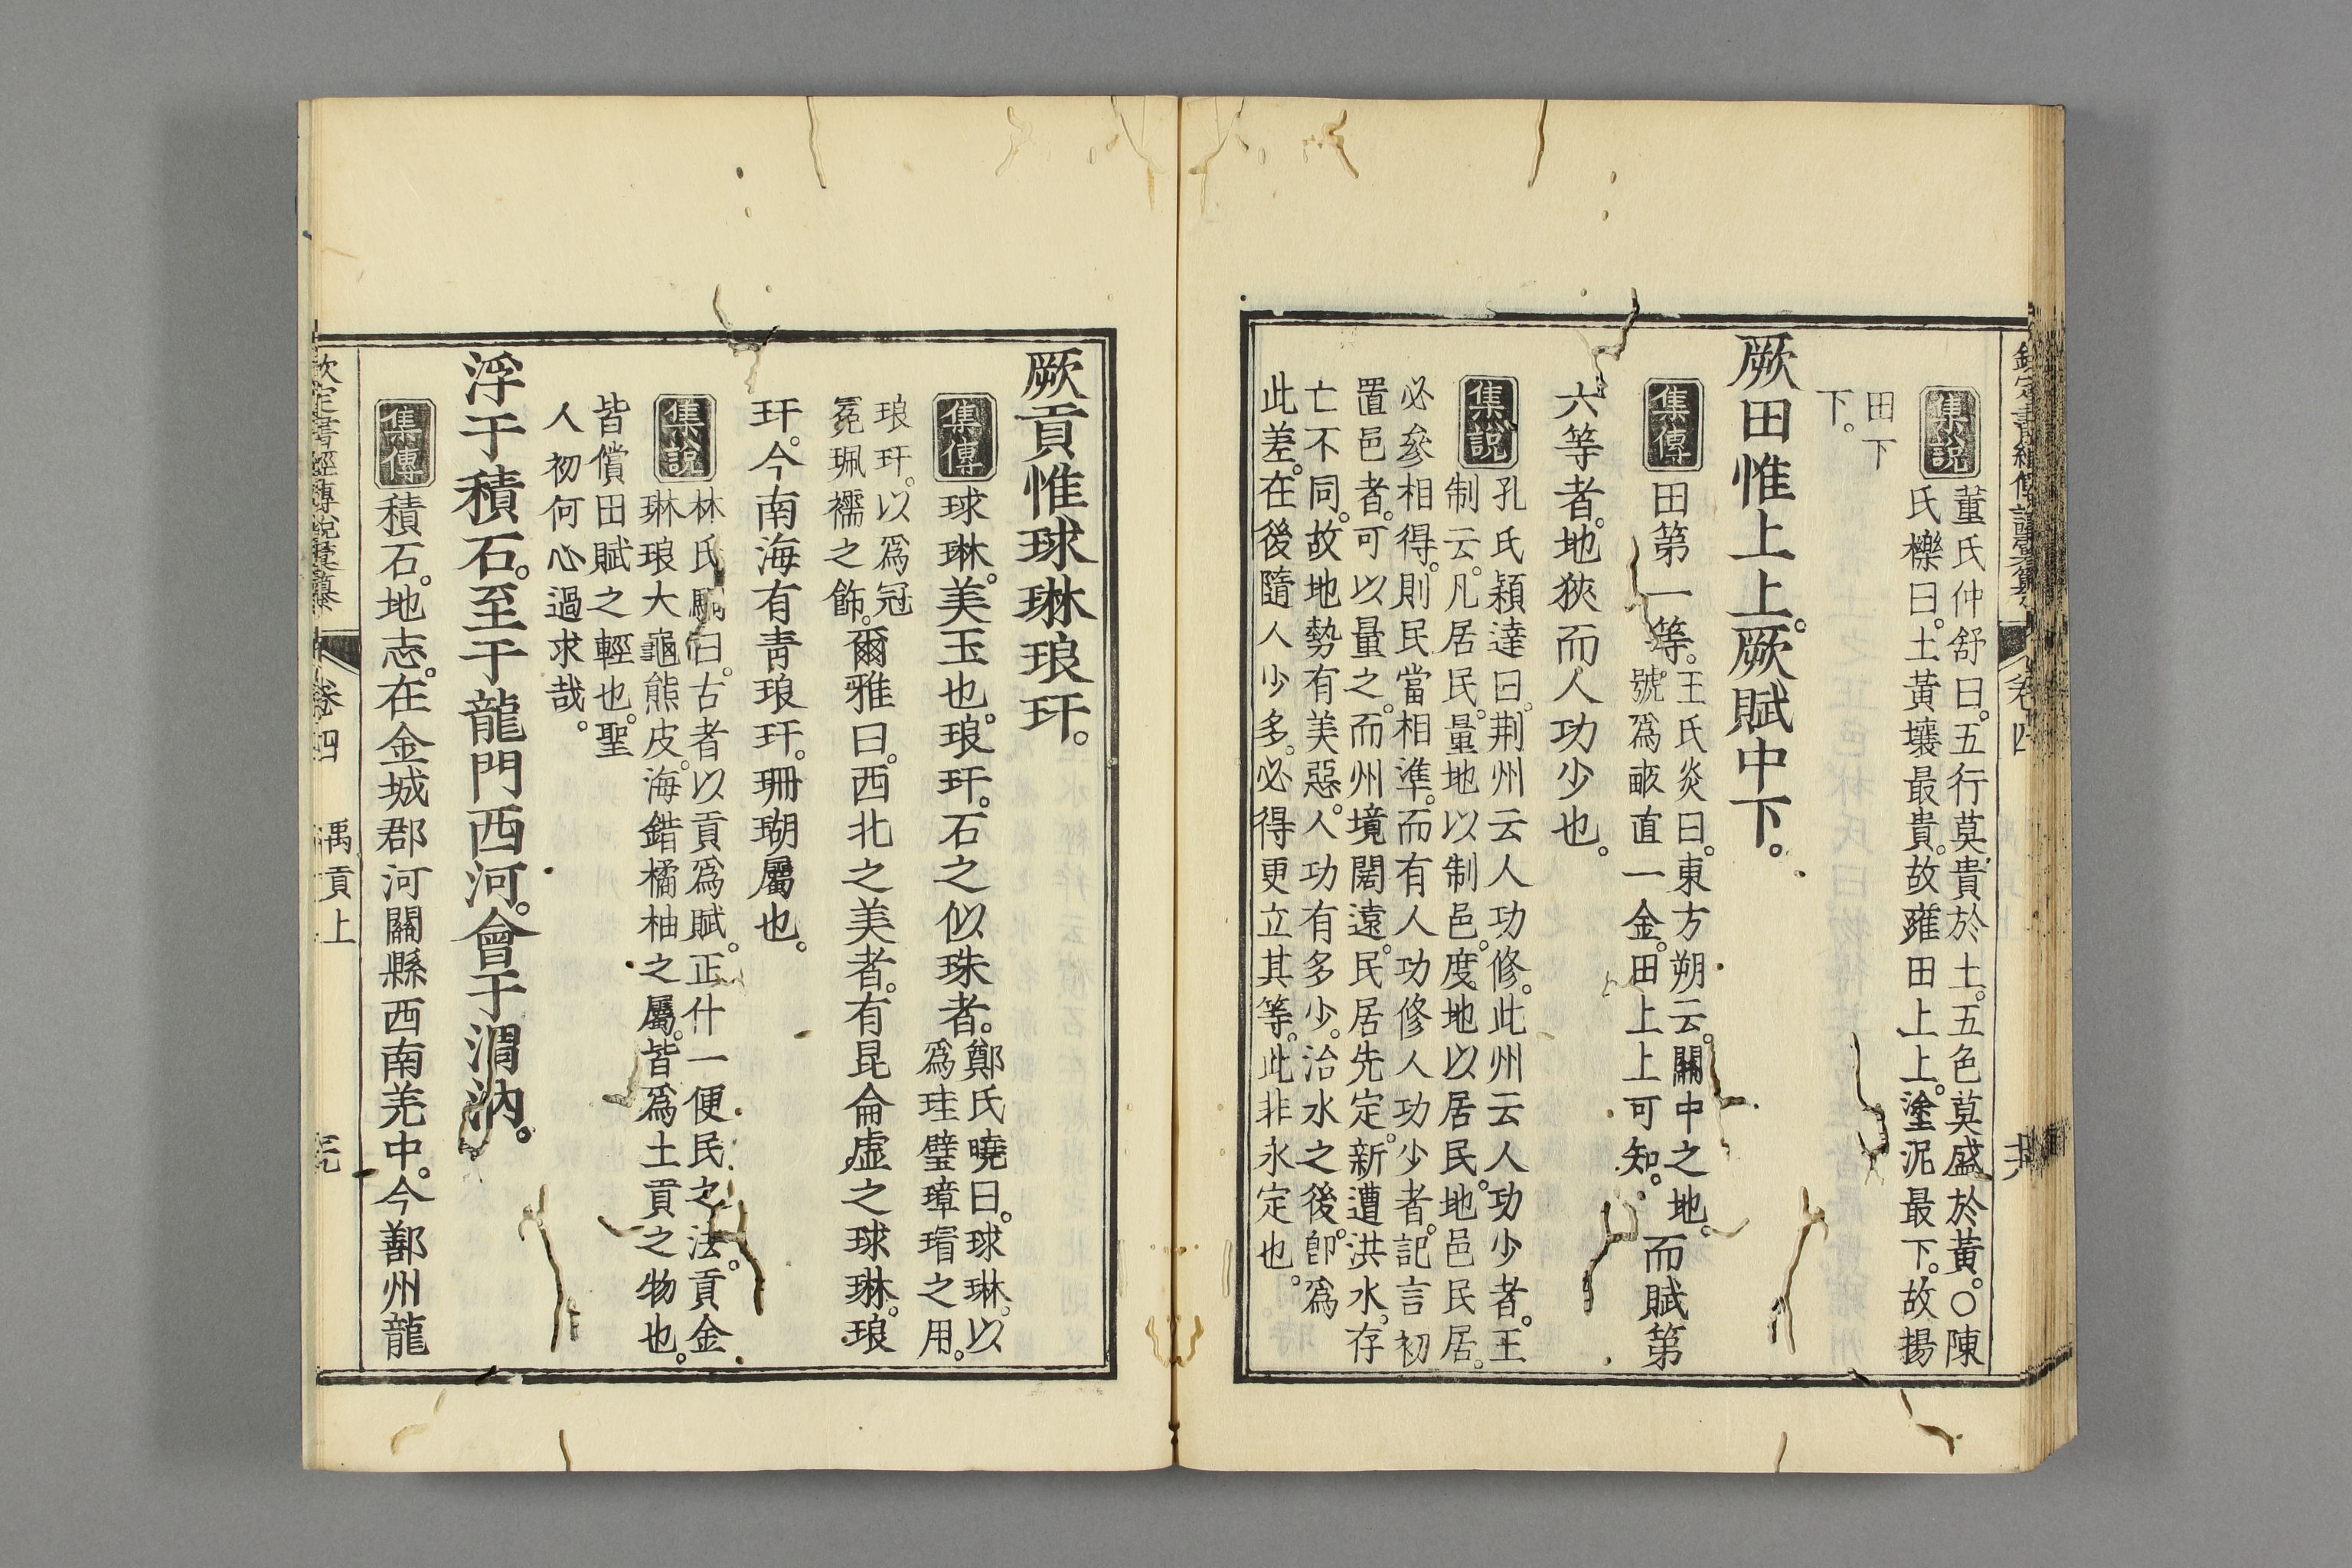 集說
董氏仲舒曰。五行莫貴於土。五色莫盛於黃。○陳
氏櫟曰。土黃壤最貴。故雍田上上。塗泥最下。故揚
田下
下。
厥田惟上上。厥賦中下。
集傳
田第一等。
王氏炎曰。東方朔云。關中之地。
號爲畝直一金。田上上可知。
而賦第
六等者。地狹而人功少也。
集說
孔氏穎達曰。荆州云人功修。此州云人功少者。王
制云。凡居民。量地以制邑。度地以居民。地邑民居。
必參相得。則民當相準。而有人功修人功少者。記言初
置邑者。可以量之。而州境闊遠。民居先定。新遭洪水。存
亡不同。故地勢有美惡。人功有多少。治水之後。卽爲
此差。在後隨人少多。必得更立其等。此非永定也。
厥貢惟球琳琅玕。
集傳
球琳。美玉也。琅玕。石之似珠者。
鄭氏曉曰。球琳。以
爲珪璧璋瑁之用。
琅玕。以爲冠
冕珮襦之飾。
爾雅曰。西北之美者。有昆侖虛之球琳。琅
玕。今南海有靑琅玕。珊瑚屬也。
集說
林氏駉曰。古者以貢爲賦。正什一便民之法。貢金
琳琅大龜熊皮。海錯橘柚之屬。皆爲土貢之物也。
皆償田賦之輕也。聖
人初何心過求哉。
浮于積石。至于龍門西河。會于渭汭。
集傳
積石。地志。在金城郡河關縣西南羌中。今鄯州龍
欽定書經傳說彙纂
卷四
禹貢上